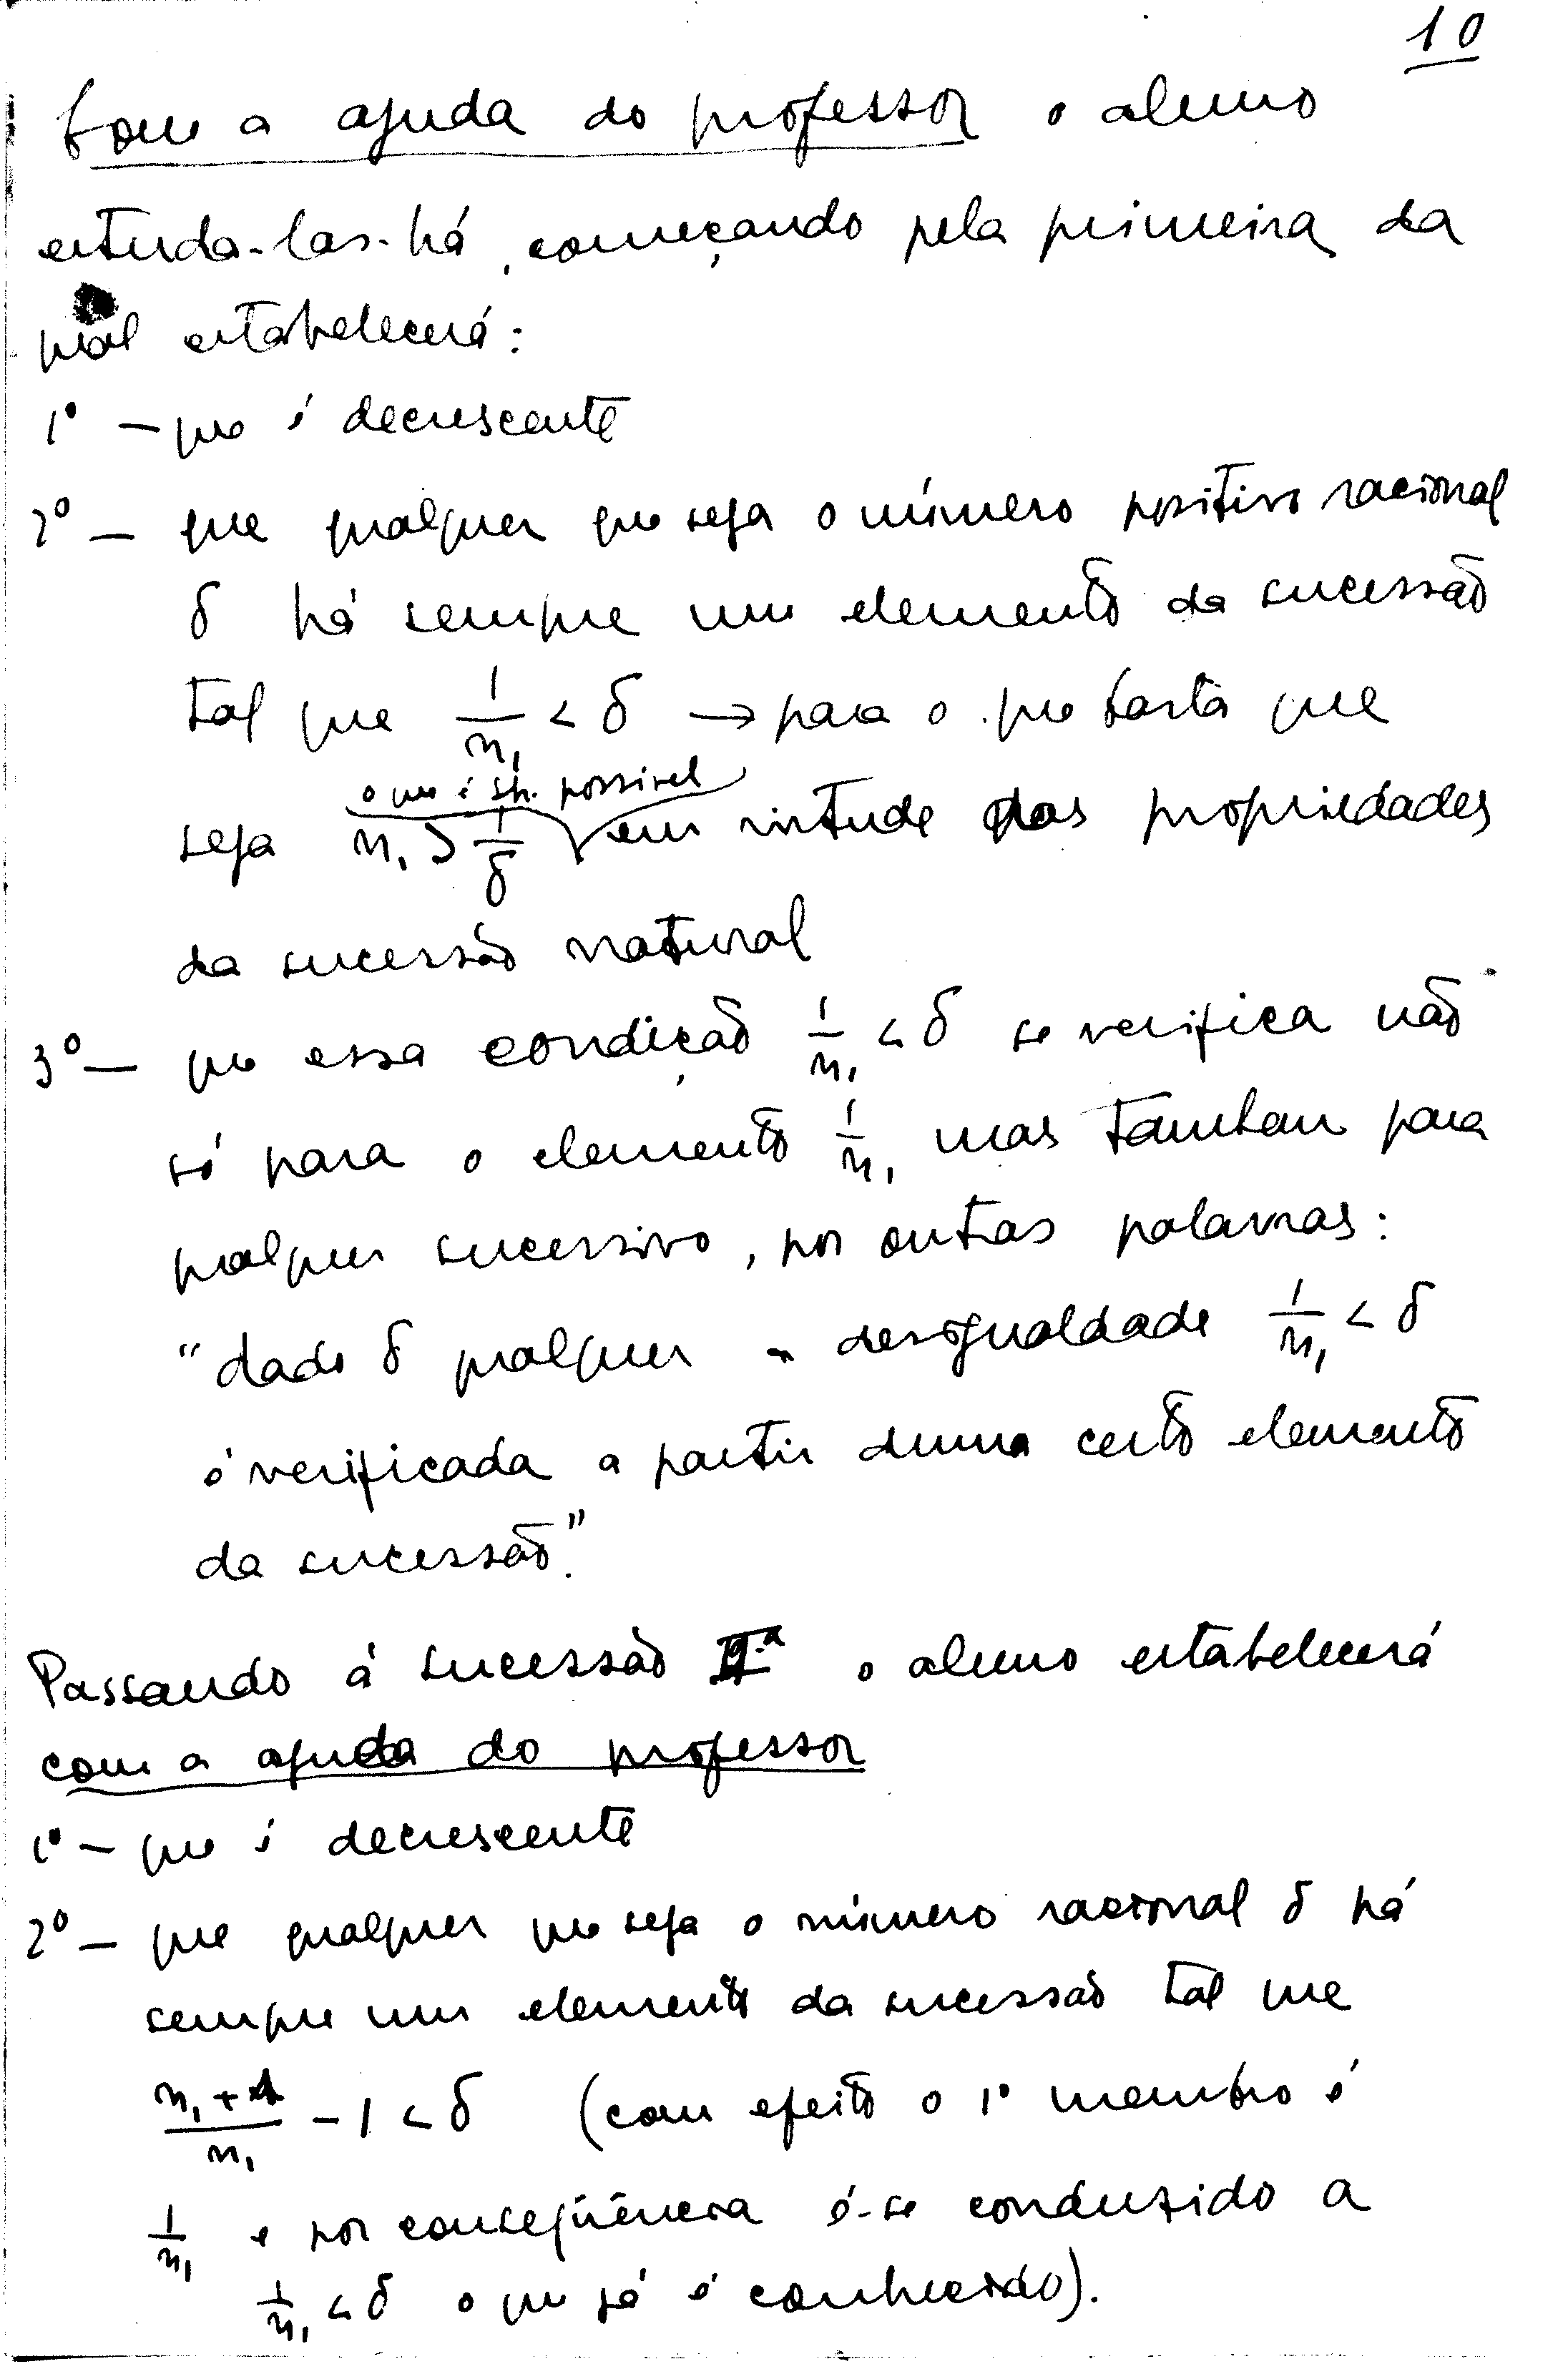 10
Com a ajuda do professor o aluno
estuda-las-há, começando pela primeira da
qual estabelecerá:
1º — que é decrescente
2º — que qualquer que seja o número positivo racional
δ há sempre um elemento da sucessão
tal que 1/n₁ < δ → para o que basta que
o que é sp. possivel
seja n₁ > 1/δ em virtude das propriedades
da sucessão natural
3º — que essa condição 1/n₁ < δ se verifica não
só para o elemento 1/n₁ mas tambem para
qualquer sucessivo, por outras palavras:
"dado δ qualquer a desigualdade 1/n₁ < δ
é verificada a partir dum certo elemento
da sucessão."
Passando á sucessão II.ª o aluno estabelecerá
com a ajuda do professor
1º — que é decrescente
2º — que qualquer que seja o número racional δ há
sempre um elemento da sucessão tal que
(n₁ + 1)/n₁ - 1 < δ (com efeito o 1º membro é
1/n₁ e por conseqüência é-se conduzido a
1/n₁ < δ o que já é conhecido).